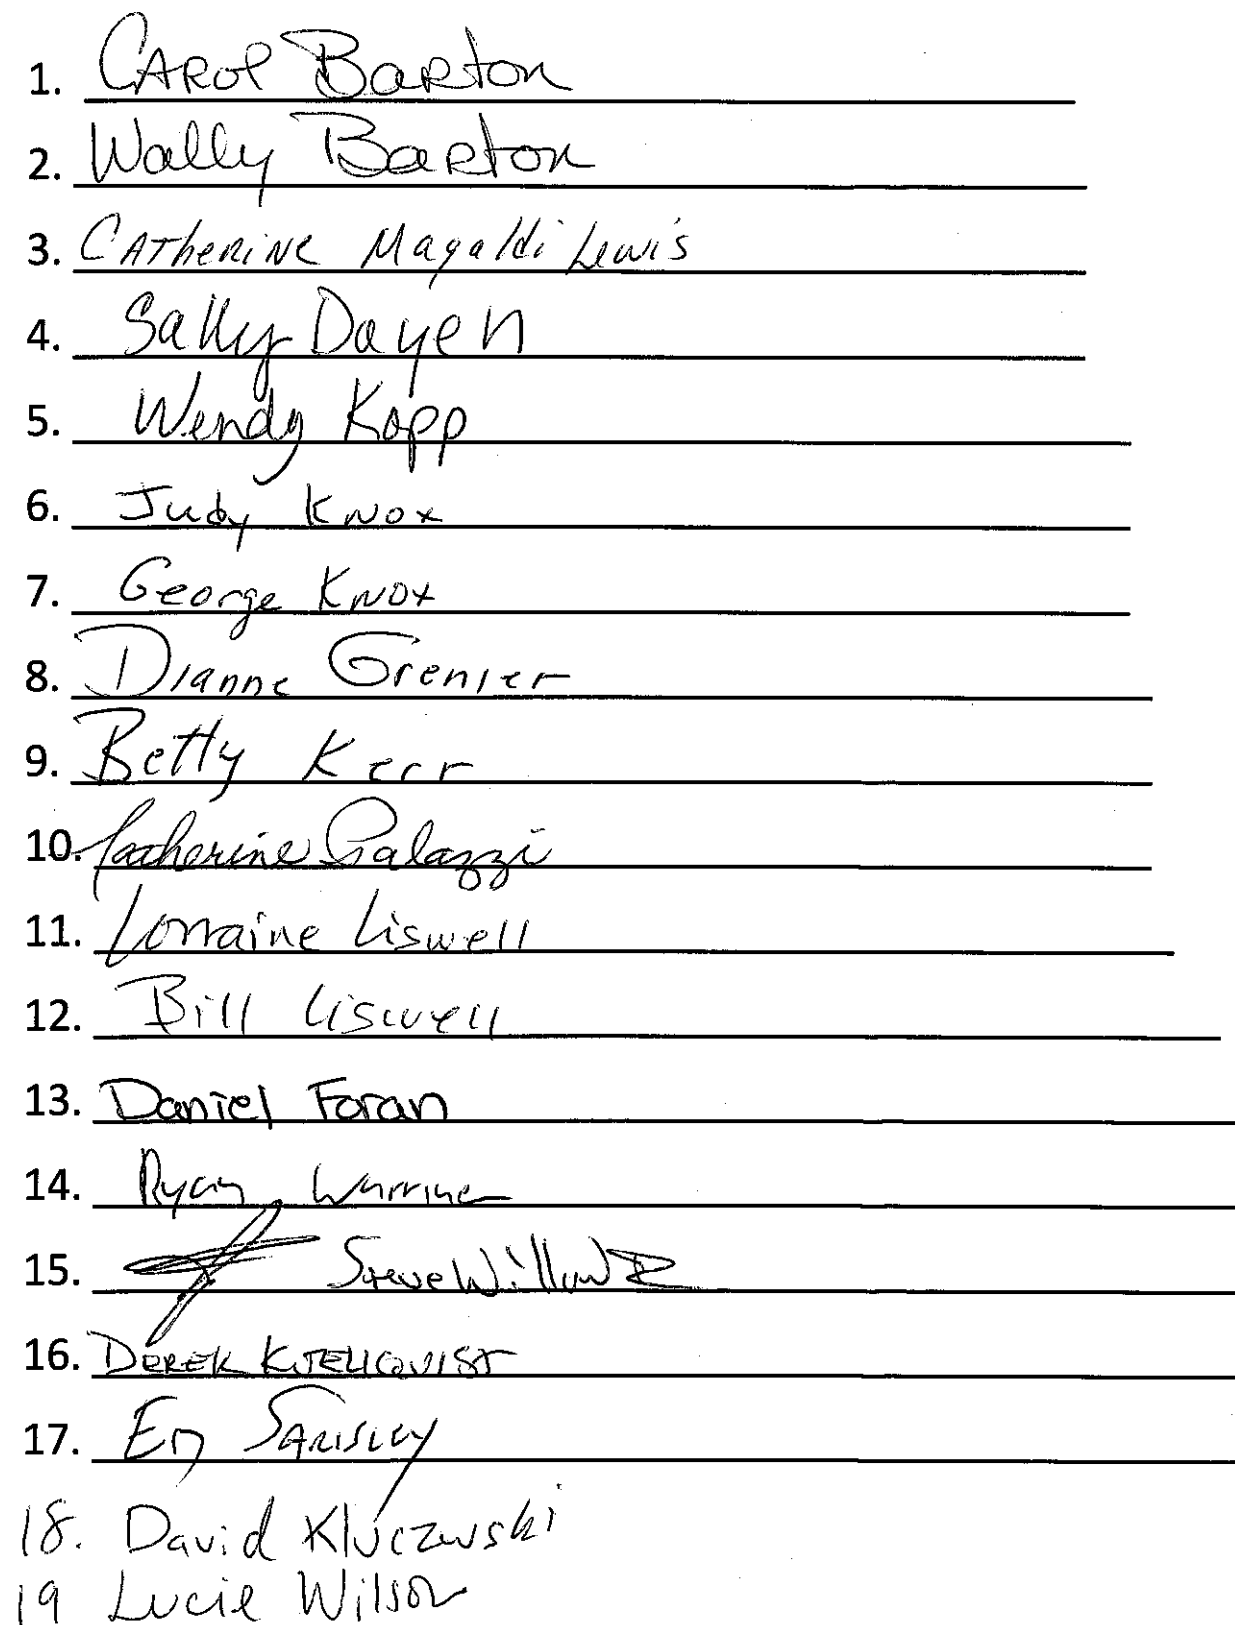 1. CAROL Barton
2. Wally Barton
3. Catherine Magaldi Lewis
4. Sally Dayen
5. Wendy Kopp
6. Judy Knox
7. George Knox
8. Dianne Grenier
9. Betty Kerr
10. Catherine Galazzi
11. Lorraine Liswell
12. Bill Liswell
13. Daniel Foran
14. Ryan Warriner
15. Steve
16. DEREK
17.
18. David Kluczwski
19 Lucie Wilson